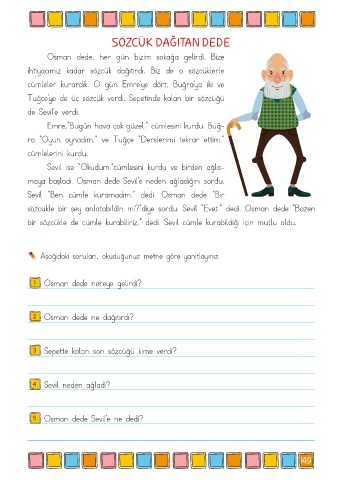 SÖZCÜK DAĞITAN DEDE
Osman dede, her gün bizim sokağa gelirdi. Bize
ihtiyacımız kadar sözcük dağıtırdı. Biz de o sözcüklerle
cümleler kurardık. O gün Emre'ye dört, Buğra'ya iki ve
Tuğçe'ye de üç sözcük verdi. Sepetinde kalan bir sözcüğü
de Sevil'e verdi.
Emre,"Bugün hava çok güzel." cümlesini kurdu. Buğ-
ra "Oyun oynadım." ve Tuğçe "Derslerimi tekrar ettim."
cümlelerini kurdu.
Sevil ise "Okudum."cümlesini kurdu ve birden ağla-
maya başladı. Osman dede Sevil'e neden ağladığını sordu.
Sevil "Ben cümle kuramadım." dedi. Osman dede "Bir
sözcükle bir şey anlatabildin mi?"diye sordu. Sevil "Evet." dedi. Osman dede "Bazen
bir sözcükle de cümle kurabiliriz." dedi. Sevil cümle kurabildiği için mutlu oldu.
Aşağıdaki soruları, okuduğunuz metne göre yanıtlayınız.
1. Osman dede nereye gelirdi?
2. Osman dede ne dağıtırdı?
3. Sepette kalan son sözcüğü kime verdi?
4. Sevil neden ağladı?
5. Osman dede Sevil'e ne dedi?
149